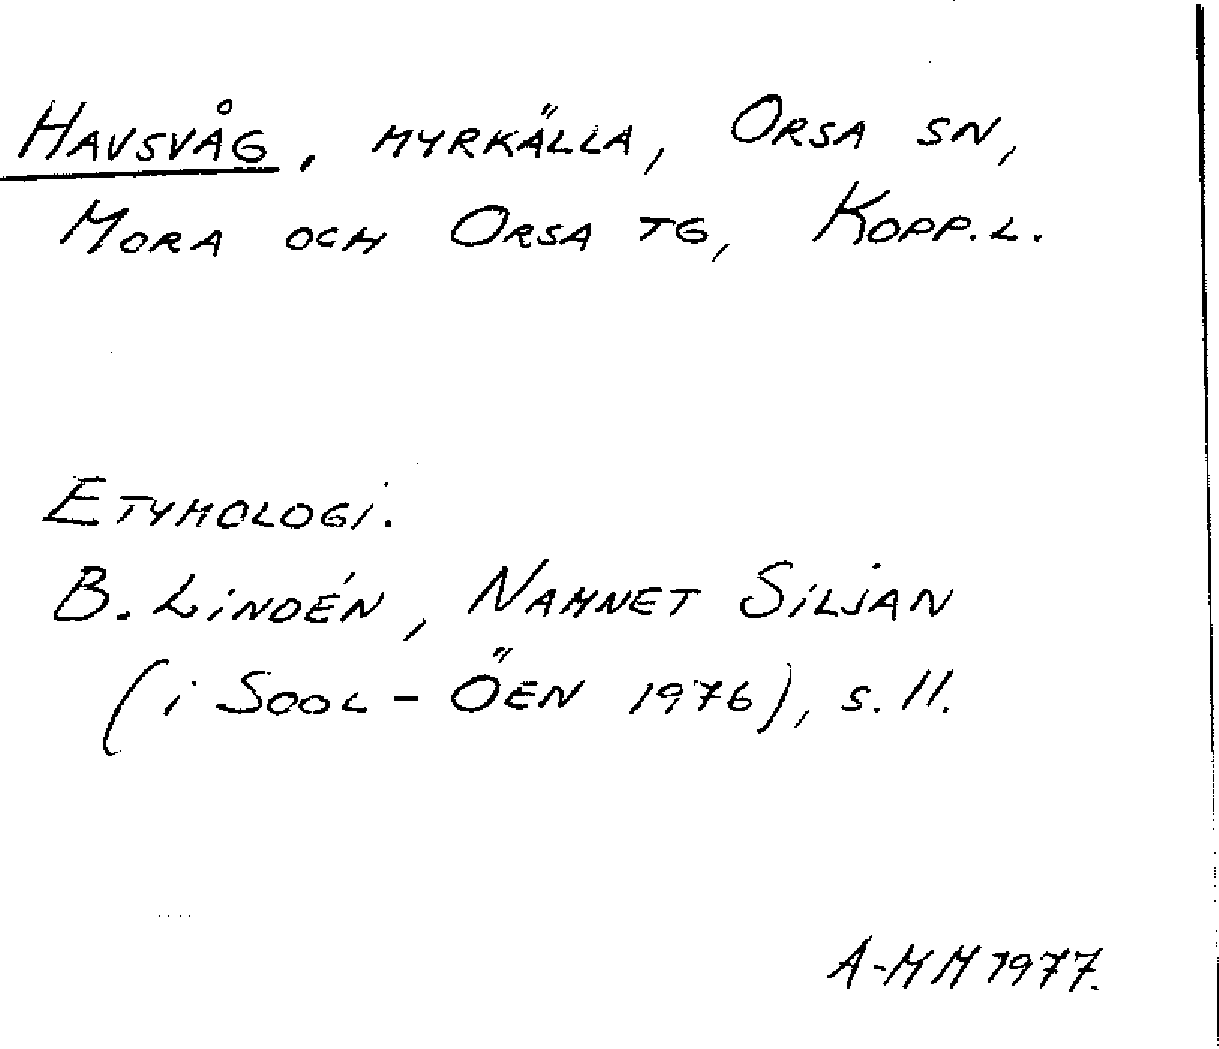 HAVSVÅG, MYRKÄLLA, ORSA SN,
MORA OCH ORSA TG, KOPP.L.
ETYMOLOGI.
B. LINDÉN, NAMNET SILJAN
(i SOOL-ÖEN 1976), S. 11.
A-MM 1977.